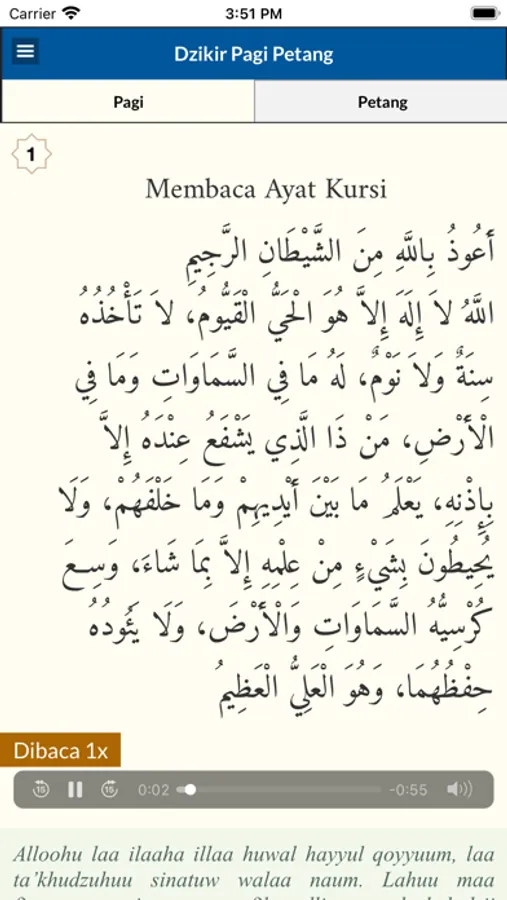 Carrier
3:51 PM
Dzikir Pagi Petang
Pagi
Petang
1
Membaca Ayat Kursi
أَعُوذُ بِاللَّهِ مِنَ الشَّيْطَانِ الرَّجِيمِ
اللَّهُ لاَ إِلَهَ إِلاَّ هُوَ الْحَيُّ الْقَيُّومُ، لاَ تَأْخُذُهُ
سِنَةٌ وَلاَ نَوْمٌ، لَهُ مَا فِي السَّمَاوَاتِ وَمَا فِي
الْأَرْضِ، مَنْ ذَا الَّذِي يَشْفَعُ عِنْدَهُ إِلاَّ
بِإِذْنِهِ، يَعْلَمُ مَا بَيْنَ أَيْدِيهِمْ وَمَا خَلْفَهُمْ، وَلَا
يُحِيطُونَ بِشَيْءٍ مِنْ عِلْمِهِ إِلاَّ بِمَا شَاءَ، وَسِعَ
كُرْسِيُّهُ السَّمَاوَاتِ وَالْأَرْضَ، وَلَا يَئُودُهُ
حِفْظُهُمَا، وَهُوَ الْعَلِيُّ الْعَظِيمُ
Dibaca 1x
15
15
0:02
-0:55
Alloohu laa ilaaha illaa huwal hayyul qoyyuum, laa
ta’khudzuhuu sinatuw walaa naum. Lahuu maa